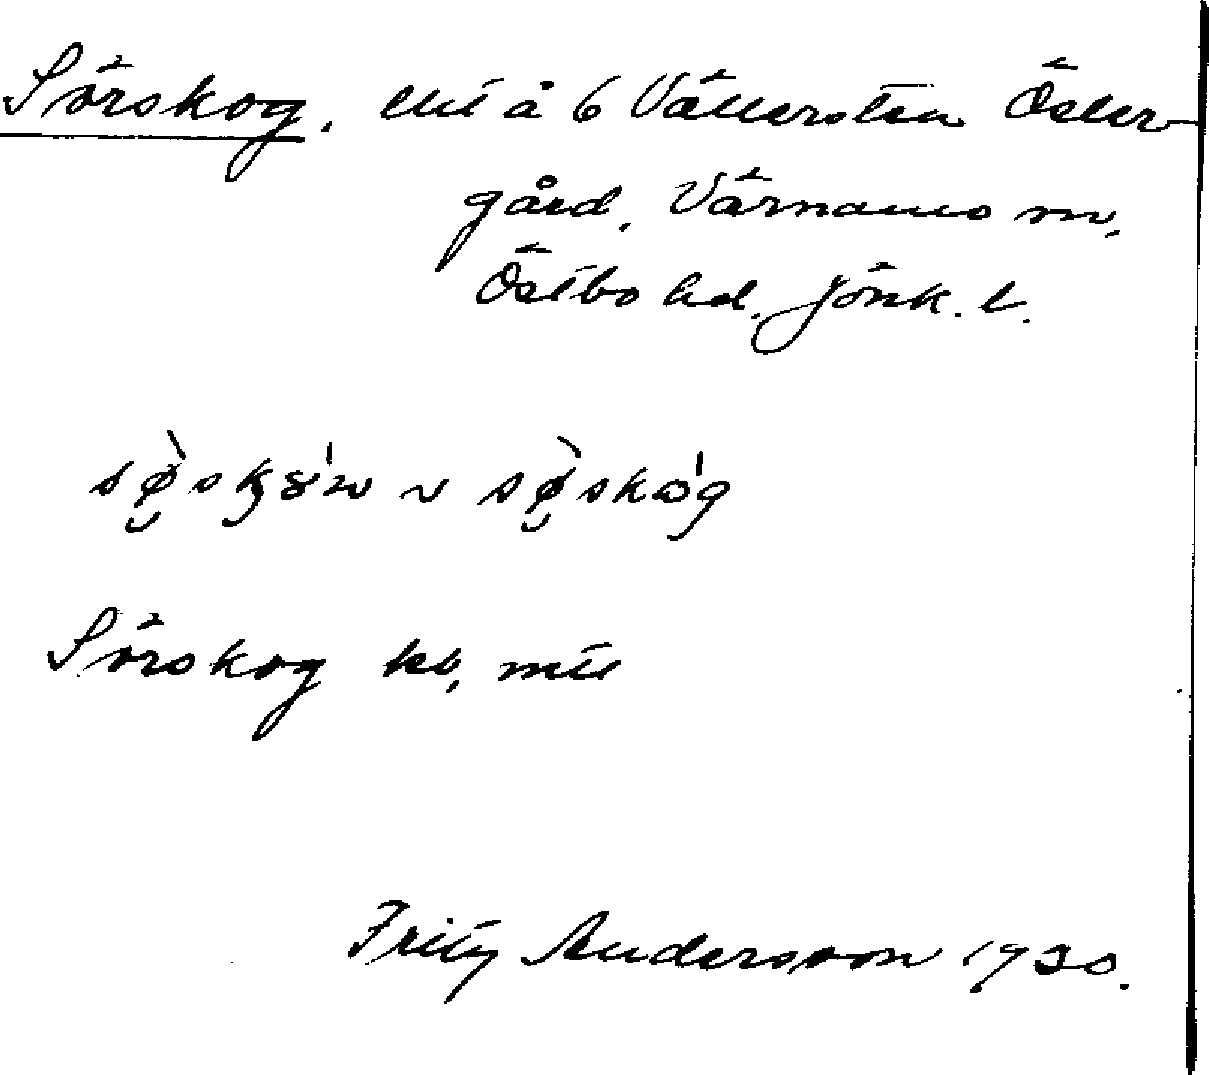 Sörskog. lht å 6 Vällersten Öster-
gård, Värnamo sn,
Östbo hd. Jönk. l.
sø̀skȣ́w ~ sø̀skóg
Sörskog kb, mtl
Fritz Andersson 1930.